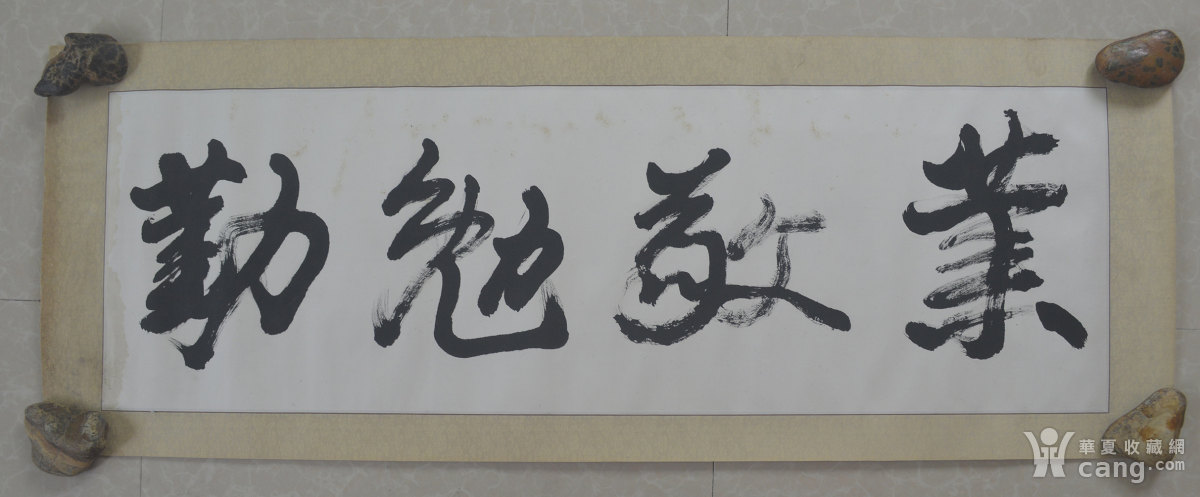 勤勉敬業
華夏收藏網
cang.com